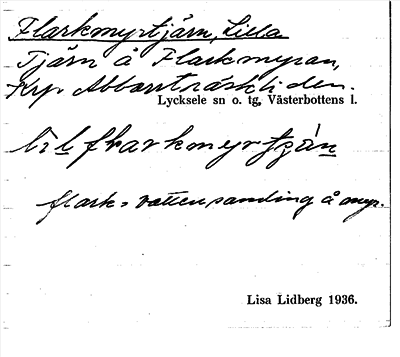 Flarkmyrtjärn, Lilla
Tjärn å Flarkmyran,
Krp Abborrträskliden.
Lycksele sn o. tg, Västerbottens l.
flark = vattensamling å myr.
Lisa Lidberg 1936.